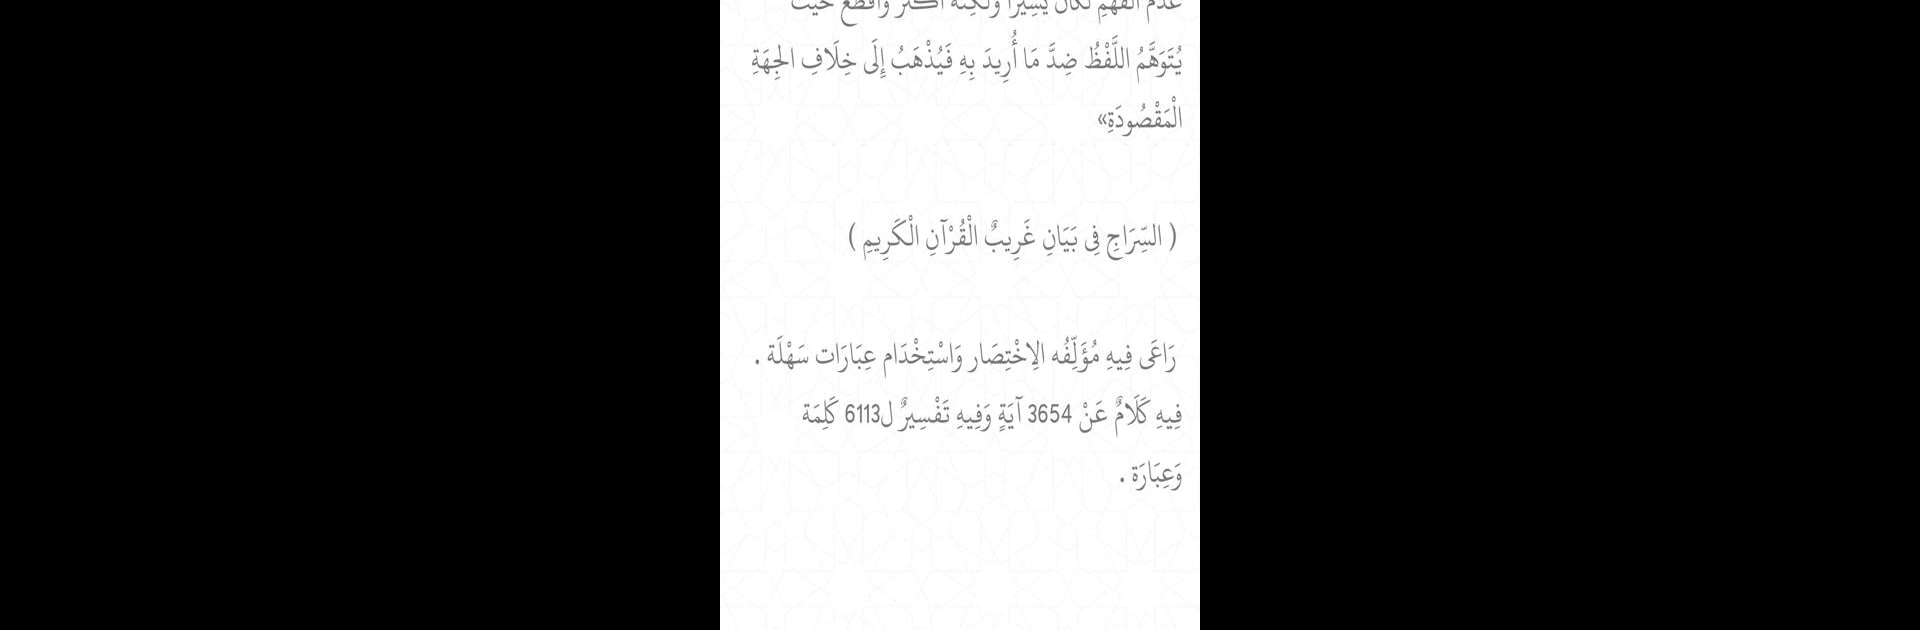 عَدَمُ الْفَهْمِ لَكَانَ يَسِيرًا وَلَكِنَّهُ أَكْثَرُ وَأَفْظَعُ حَيْثُ
يُتَوَهَّمُ اللَّفْظُ ضِدَّ مَا أُرِيدَ بِهِ فَيُذْهَبُ إِلَى خِلَافِ الجِهَةِ
الْمَقْصُودَةِ»
( السِّرَاجِ فِى بَيَانِ غَرِيبٌ الْقُرْآنِ الْكَرِيمِ )
رَاعَى فِيهِ مُؤَلِّفُه الِاخْتِصَار وَاسْتِخْدَام عِبَارَات سَهْلَة .
فِيهِ كَلَامٌ عَنْ 3654 آيَةٍ وَفِيهِ تَفْسِيرٌ ل6113 كَلِمَة
وَعِبَارَة .